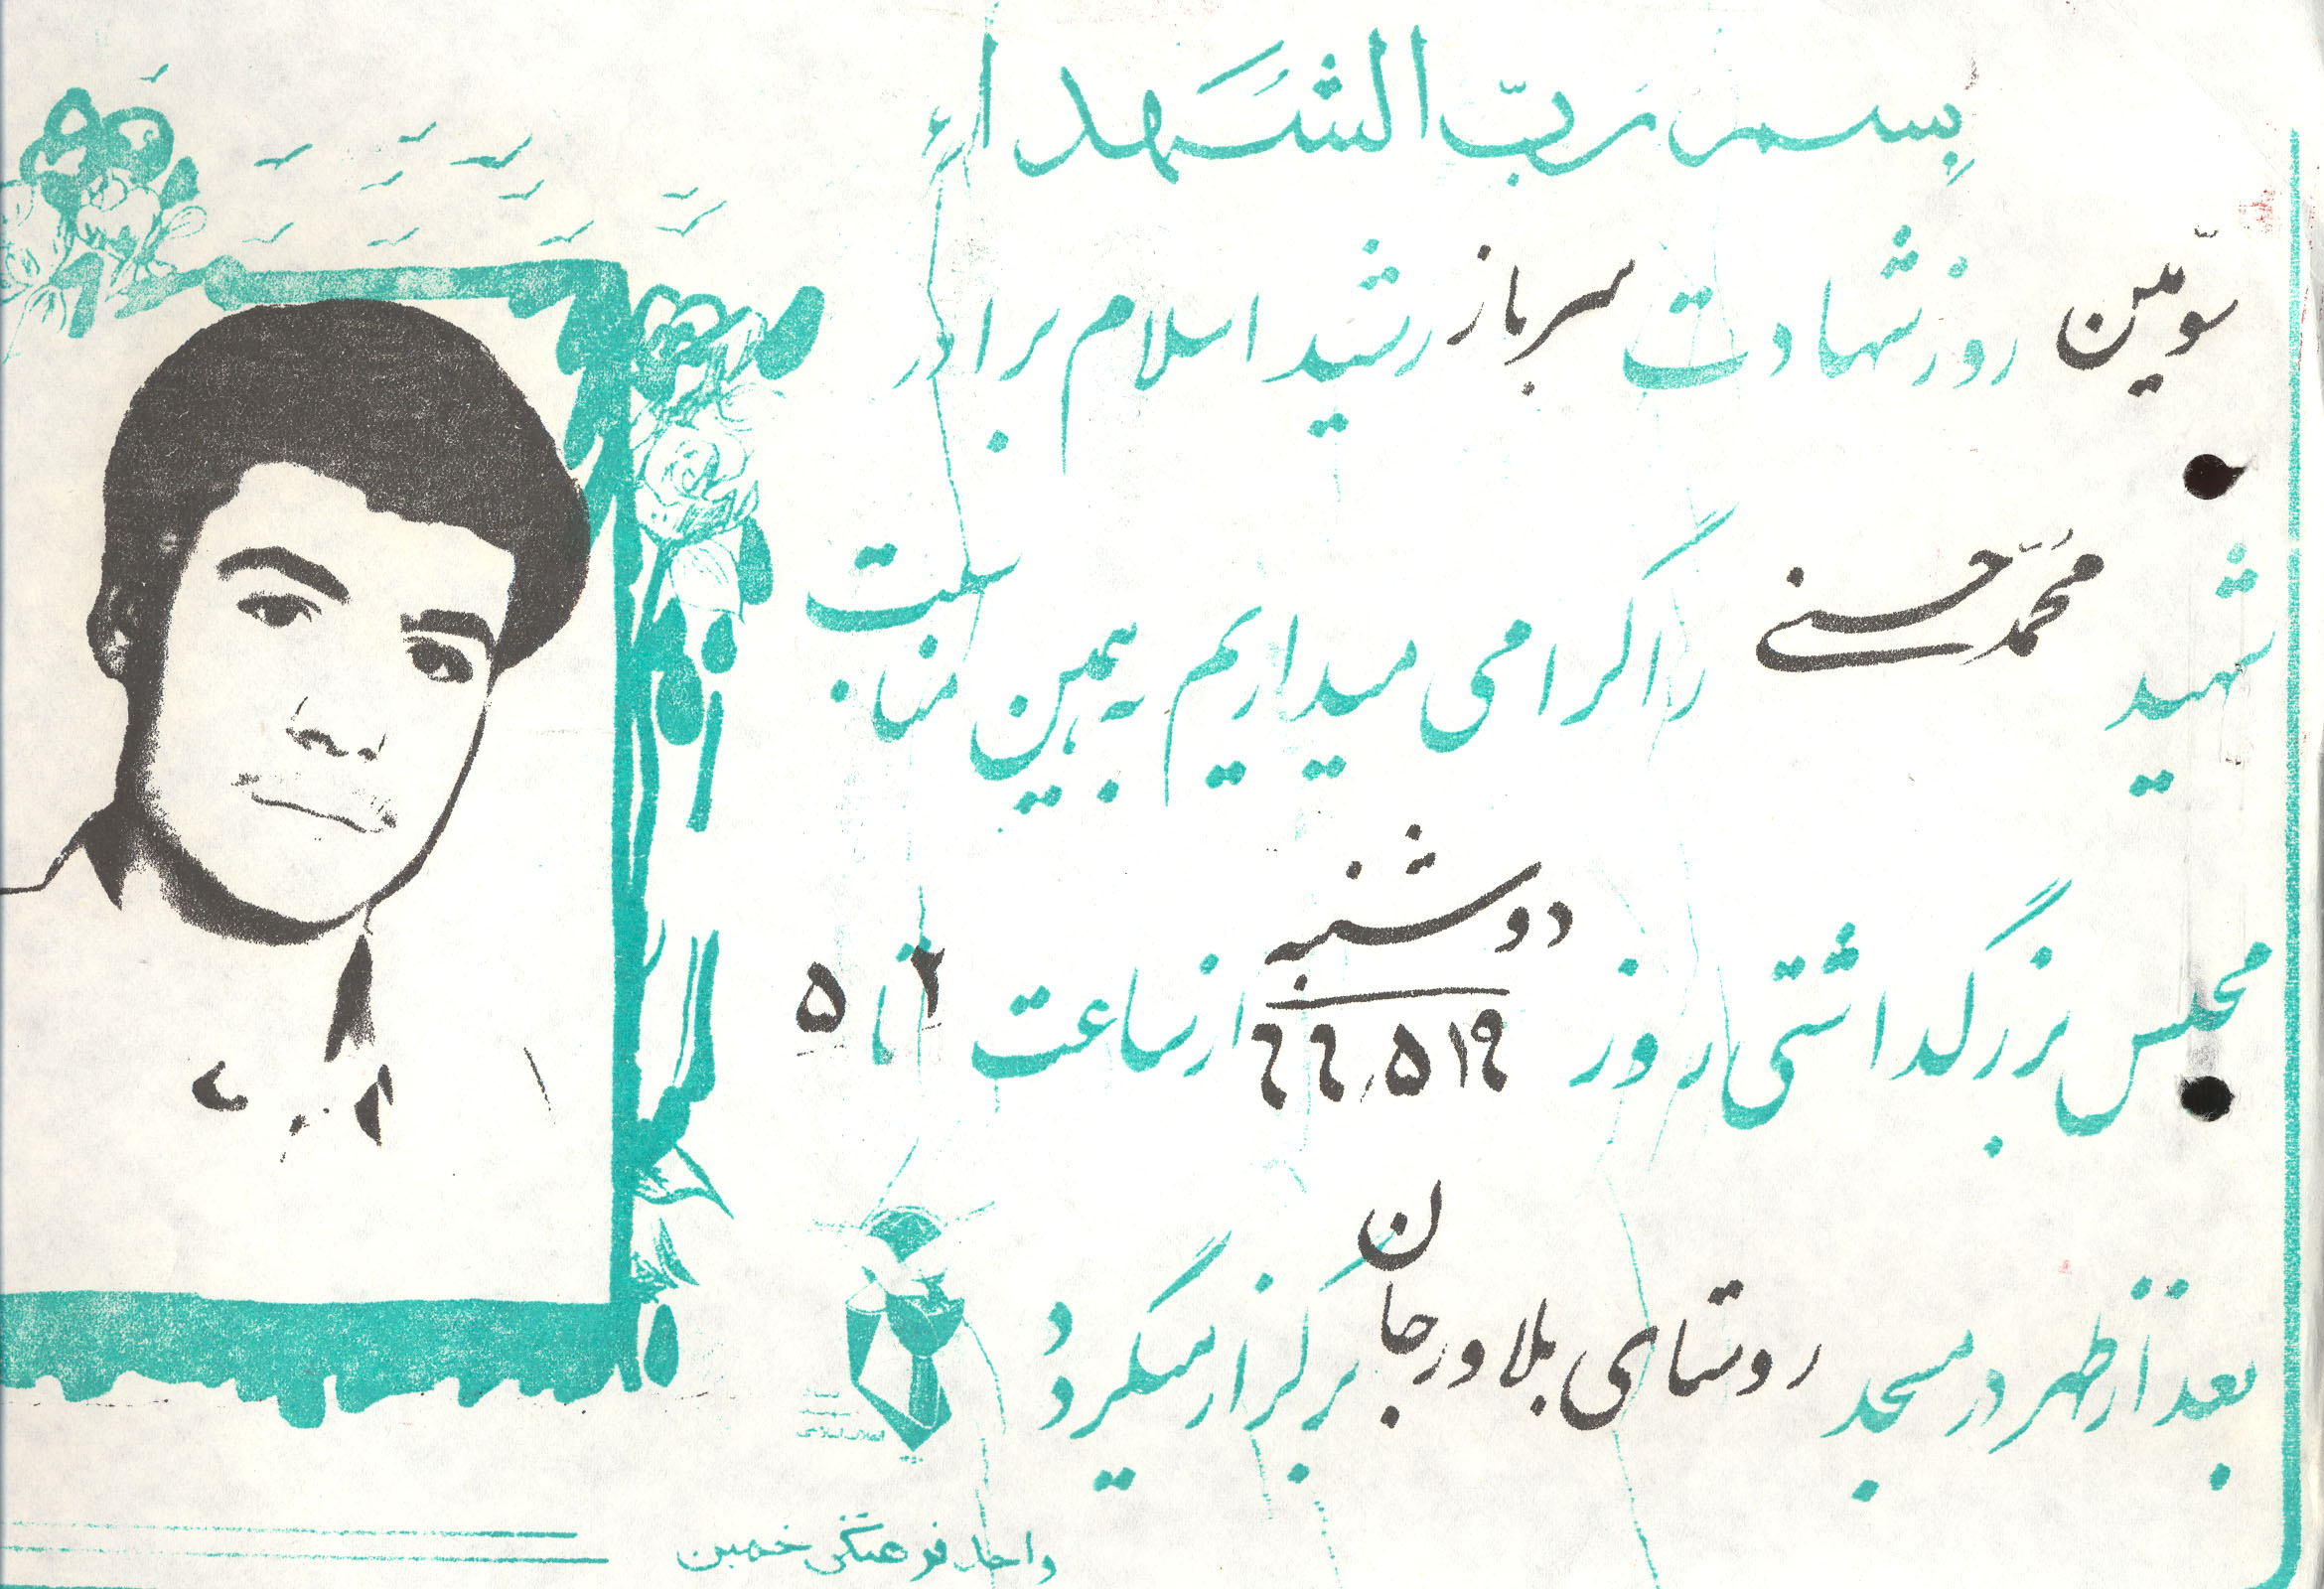 بِسم رَبّ الشَهداءِ
سوّمین روز شهادت سرباز رشید اسلام برادر
شهید محمّد حسنی را گرامی میداریم به همین مناسبت
مجلس بزرگداشتی روز دوشنبه ۶۶٫۵٫۱۹ از ساعت ۲ تا ۵
بعد از ظهر در مسجد روستای بلاورجان برگزار میگردد
واحد فرهنگی خمین